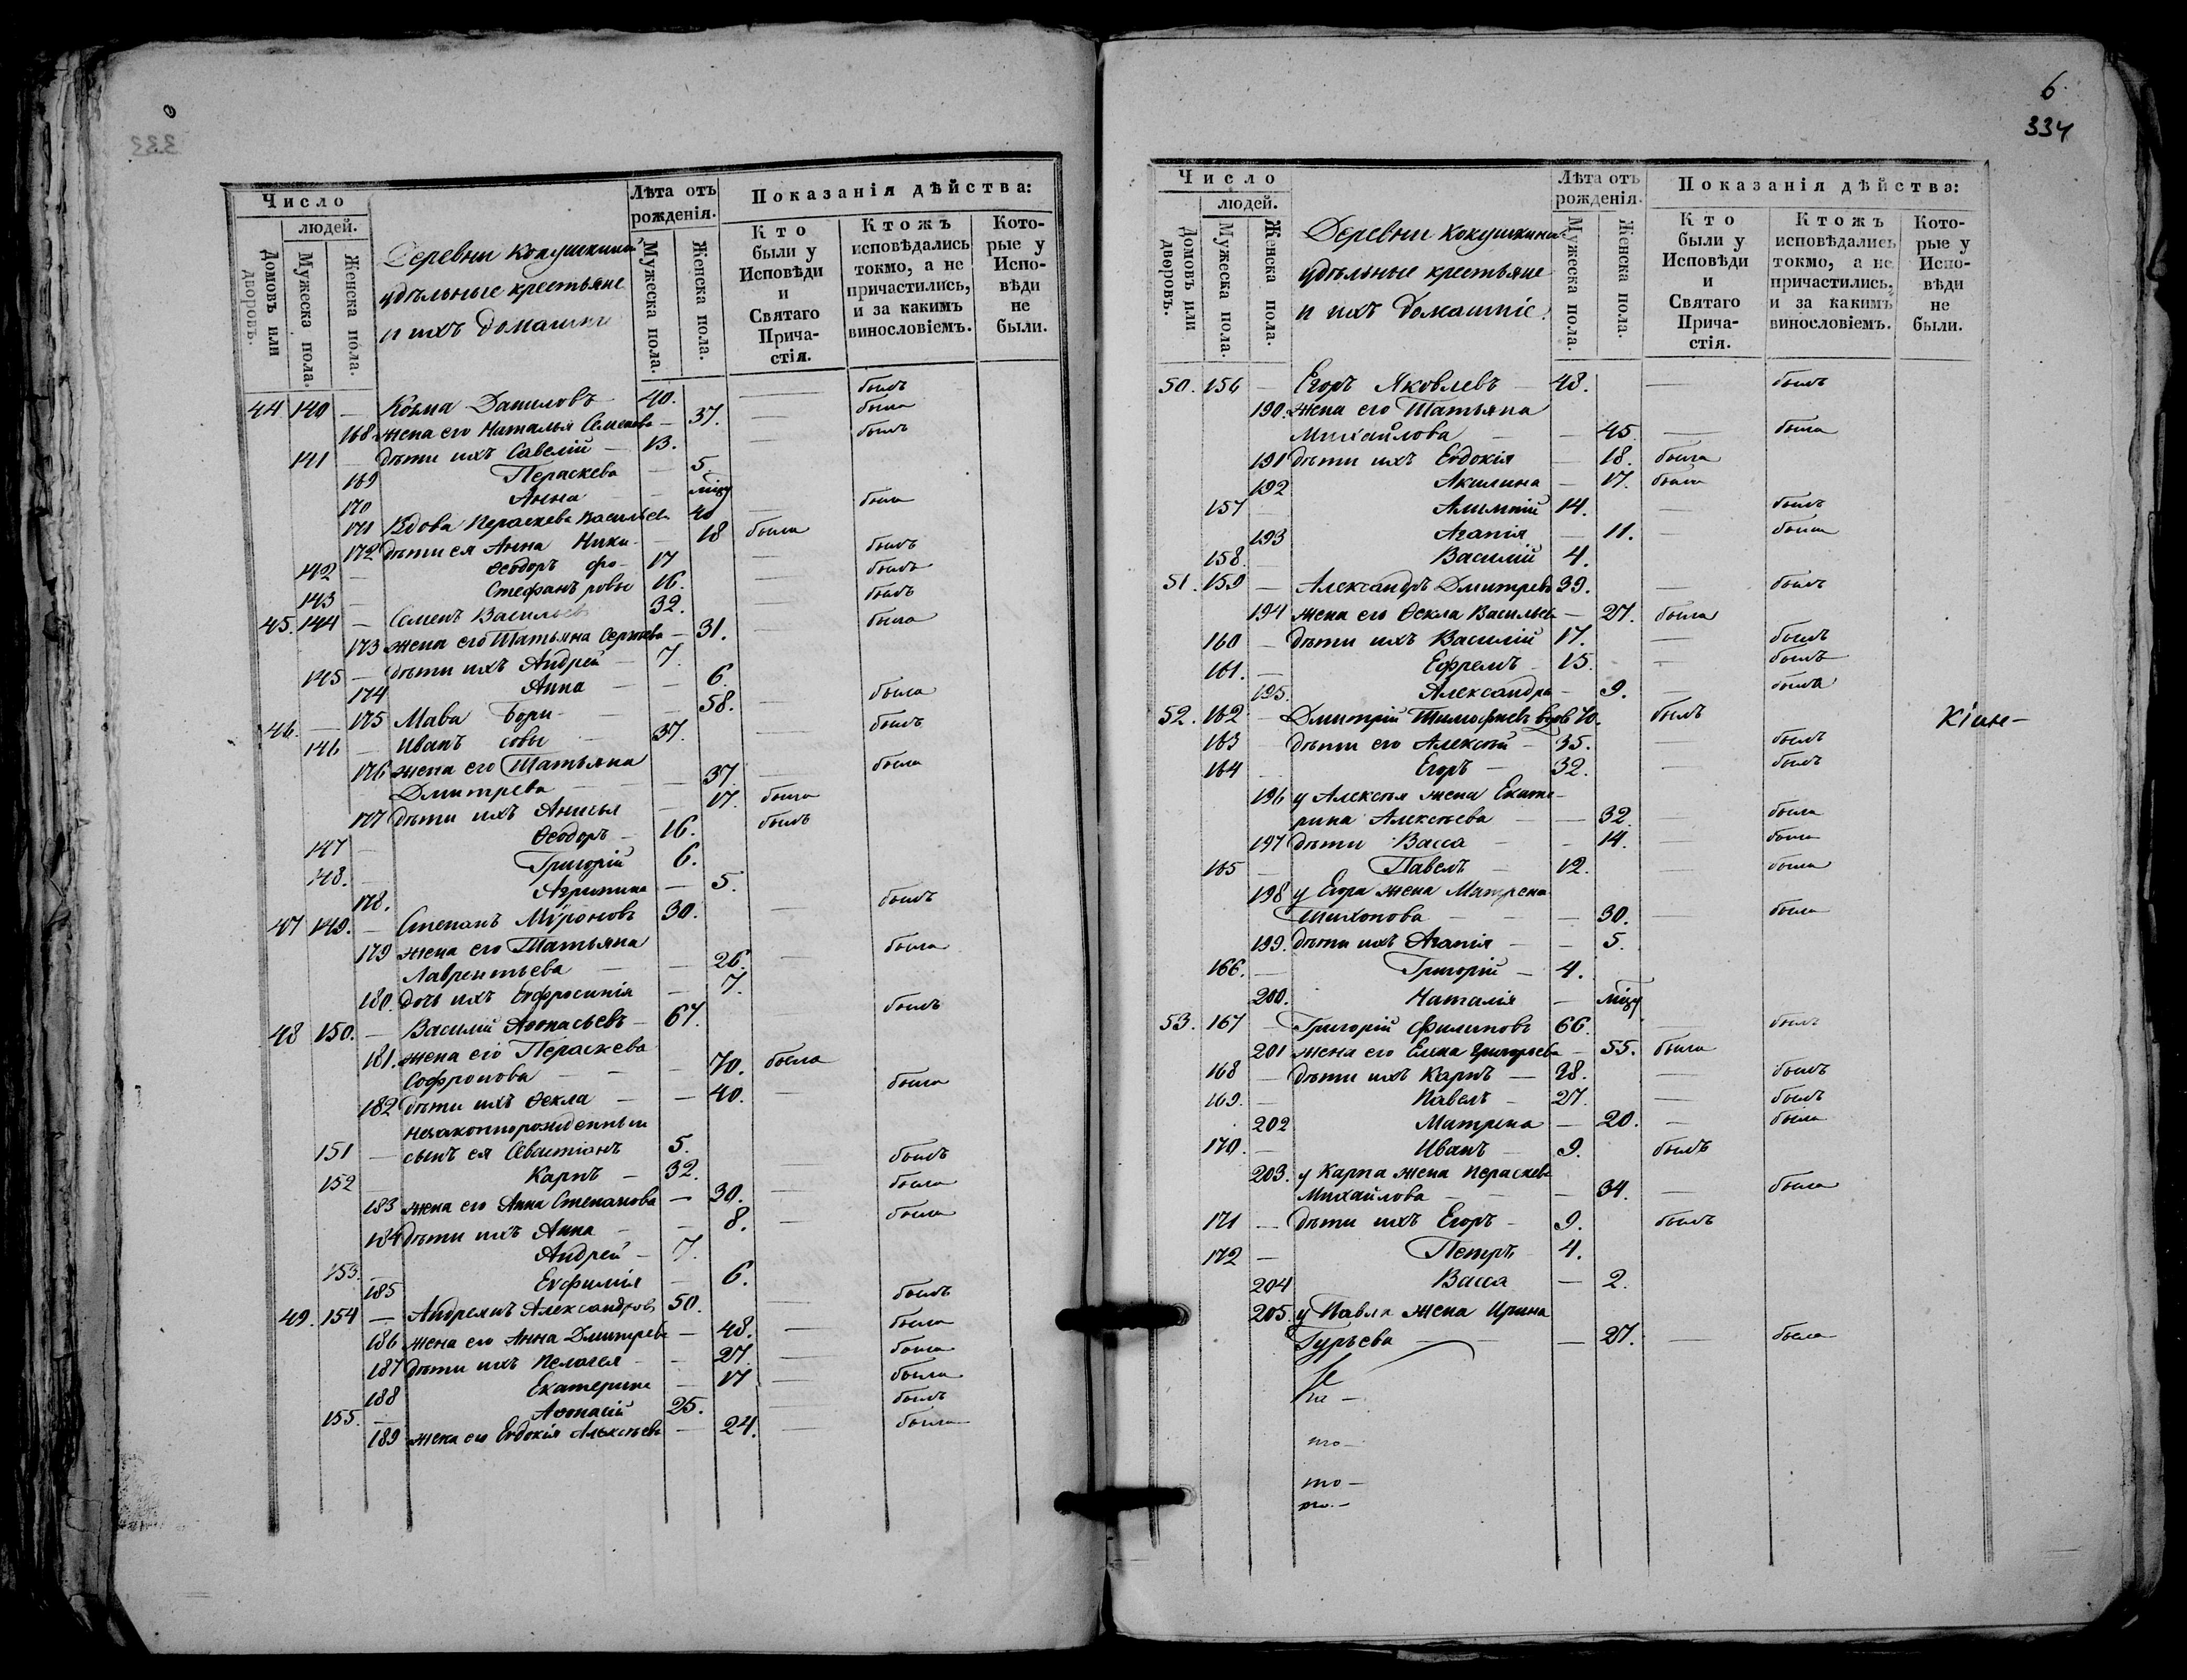 Число
людей.
Домовъ или дворовъ.
Мужеска пола.
Женска пола.
Деревни Кокушкина
удѣльные крестьяне
и ихъ домашніе
Лѣта отъ рожденія.
Мужеска пола.
Женска пола.
Показанія дѣйства:
Кто были у Исповѣди и Святаго Прича-стія.
Ктожъ исповѣдались токмо, а не причастились, и за какимъ винословіемъ.
Кото-рые у Испо-вѣди не были.
44 140 — Козма Даниловъ 40. — былъ
168 жена его Наталья Семенова — 37. — была
141 — дѣти ихъ Савелій — 13. — былъ
169 Пераскева — 5.
170 Анна —
171 Вдова Пераскева Васильев 40 — была
172 дѣти ея Анна Ники- — 18 была
142 — Ѳеодоръ фо- 17 — былъ
143 — Стефанъ ровы 16. — былъ
45. 144 — Семенъ Васильев 32. — былъ
173 жена его Татьяна Сергѣева — 31. — была
145 — дѣти ихъ Андрей — 7.
174 Анна — — 6.
46. — 175 Мава Бори- — 58. — была
146 — Иванъ совы — 37. — былъ
176 жена его Татьяна
Дмитрева — — 37 — была
177 дѣти ихъ Анисья — 17. была
147 — Ѳеодоръ — 16. былъ
148. — Григорій 6.
178. Агрипина — 5.
47 149. — Степанъ Мѵроновъ 30. — былъ
179 жена его Татьяна
Лаврентьева — — 26. — была
180. дочь ихъ Евфросинія — 7.
48 150. — Василій Аѳонасьевъ — 67. — былъ
181. жена его Пераскева
Софронова — — 70. была
182 дѣти ихъ Ѳекла — — 40. — была
Незаконнорожденный
151 — сынъ ея Севастіанъ 5.
152 — Карпъ — 32. — былъ
183 жена его Анна Степанова — 30. — была
184 дѣти ихъ Анна — — 8. — была
153. — Андрей — 7.
185 Евфимія — 6.
49. 154 — Андреянъ Александров 50. — былъ
186 жена его Анна Дмитрев — 48. — была
187 дѣти ихъ Пелагея — — 27. — была
188 Екатерина — 17 — была
155. — Аѳонасій 25. — былъ
189 жена его Евдокія Алексѣев — 24. — была
6.
334
Число
людей.
Домовъ или дворовъ.
Мужеска пола.
Женска пола.
Деревни Кокушкина
удѣльные крестьяне
и ихъ домашніе.
Лѣта отъ рожденія.
Мужеска пола.
Женска пола.
Показанія дѣйства:
Кто были у Исповѣди и Святаго Прича-стія.
Ктожъ исповѣдались токмо, а не причастились, и за какимъ винословіемъ.
Кото-рые у Испо-вѣди не были.
50. 156 — Егоръ Яковлевъ — 48. — былъ
190. жена его Татьяна
Михайлова — — 45. — была
191 дѣти ихъ Евдокія — 18. была
192 Акилина — 17. была
157 — Алимпій 14. — былъ
193 Агапія — 11. — была
158. — Василій 4.
51. 159 — Александръ Дмитревъ 39. — былъ
194 жена его Ѳекла Васильев — 27. была
160 — дѣти ихъ Василій 17. — былъ
161. — Ефремъ — 15. — былъ
195. Александра — 9. — была
52. 162 — Дмитрій Тимофѣевъ вдовъ 70. былъ
163 — дѣти его Алексѣй — 35. — былъ
164 — Егоръ — 32. — былъ
196 у Алексѣя жена Екате-
рина Алексѣева — — 32. — была
197 дѣти Васса — — 14. — была
165 — Павелъ — 12. — была
198 у Егора жена Матрена
Тихонова — — 30. — была
199. дѣти ихъ Агапія — — 5.
166. — Григорій — 4.
200. Наталія —
53. 167 — Григорій Филиповъ 66. — былъ
201 жена его Елена Григорьева — 55. была
168 — дѣти ихъ Карпъ — 28. — былъ
169. — Павелъ — 27. — былъ
202 Матрена — 20. — была
170. — Иванъ — 9. былъ
203. у Карпа жена Пераскев
Михайлова — — 34. — была
171 — дѣти ихъ Егоръ — 9. былъ
172 — Петръ — 4.
204 Васса — 2.
205. у Павла жена Ирина
Гурьева — — 27. — была
то —
то —